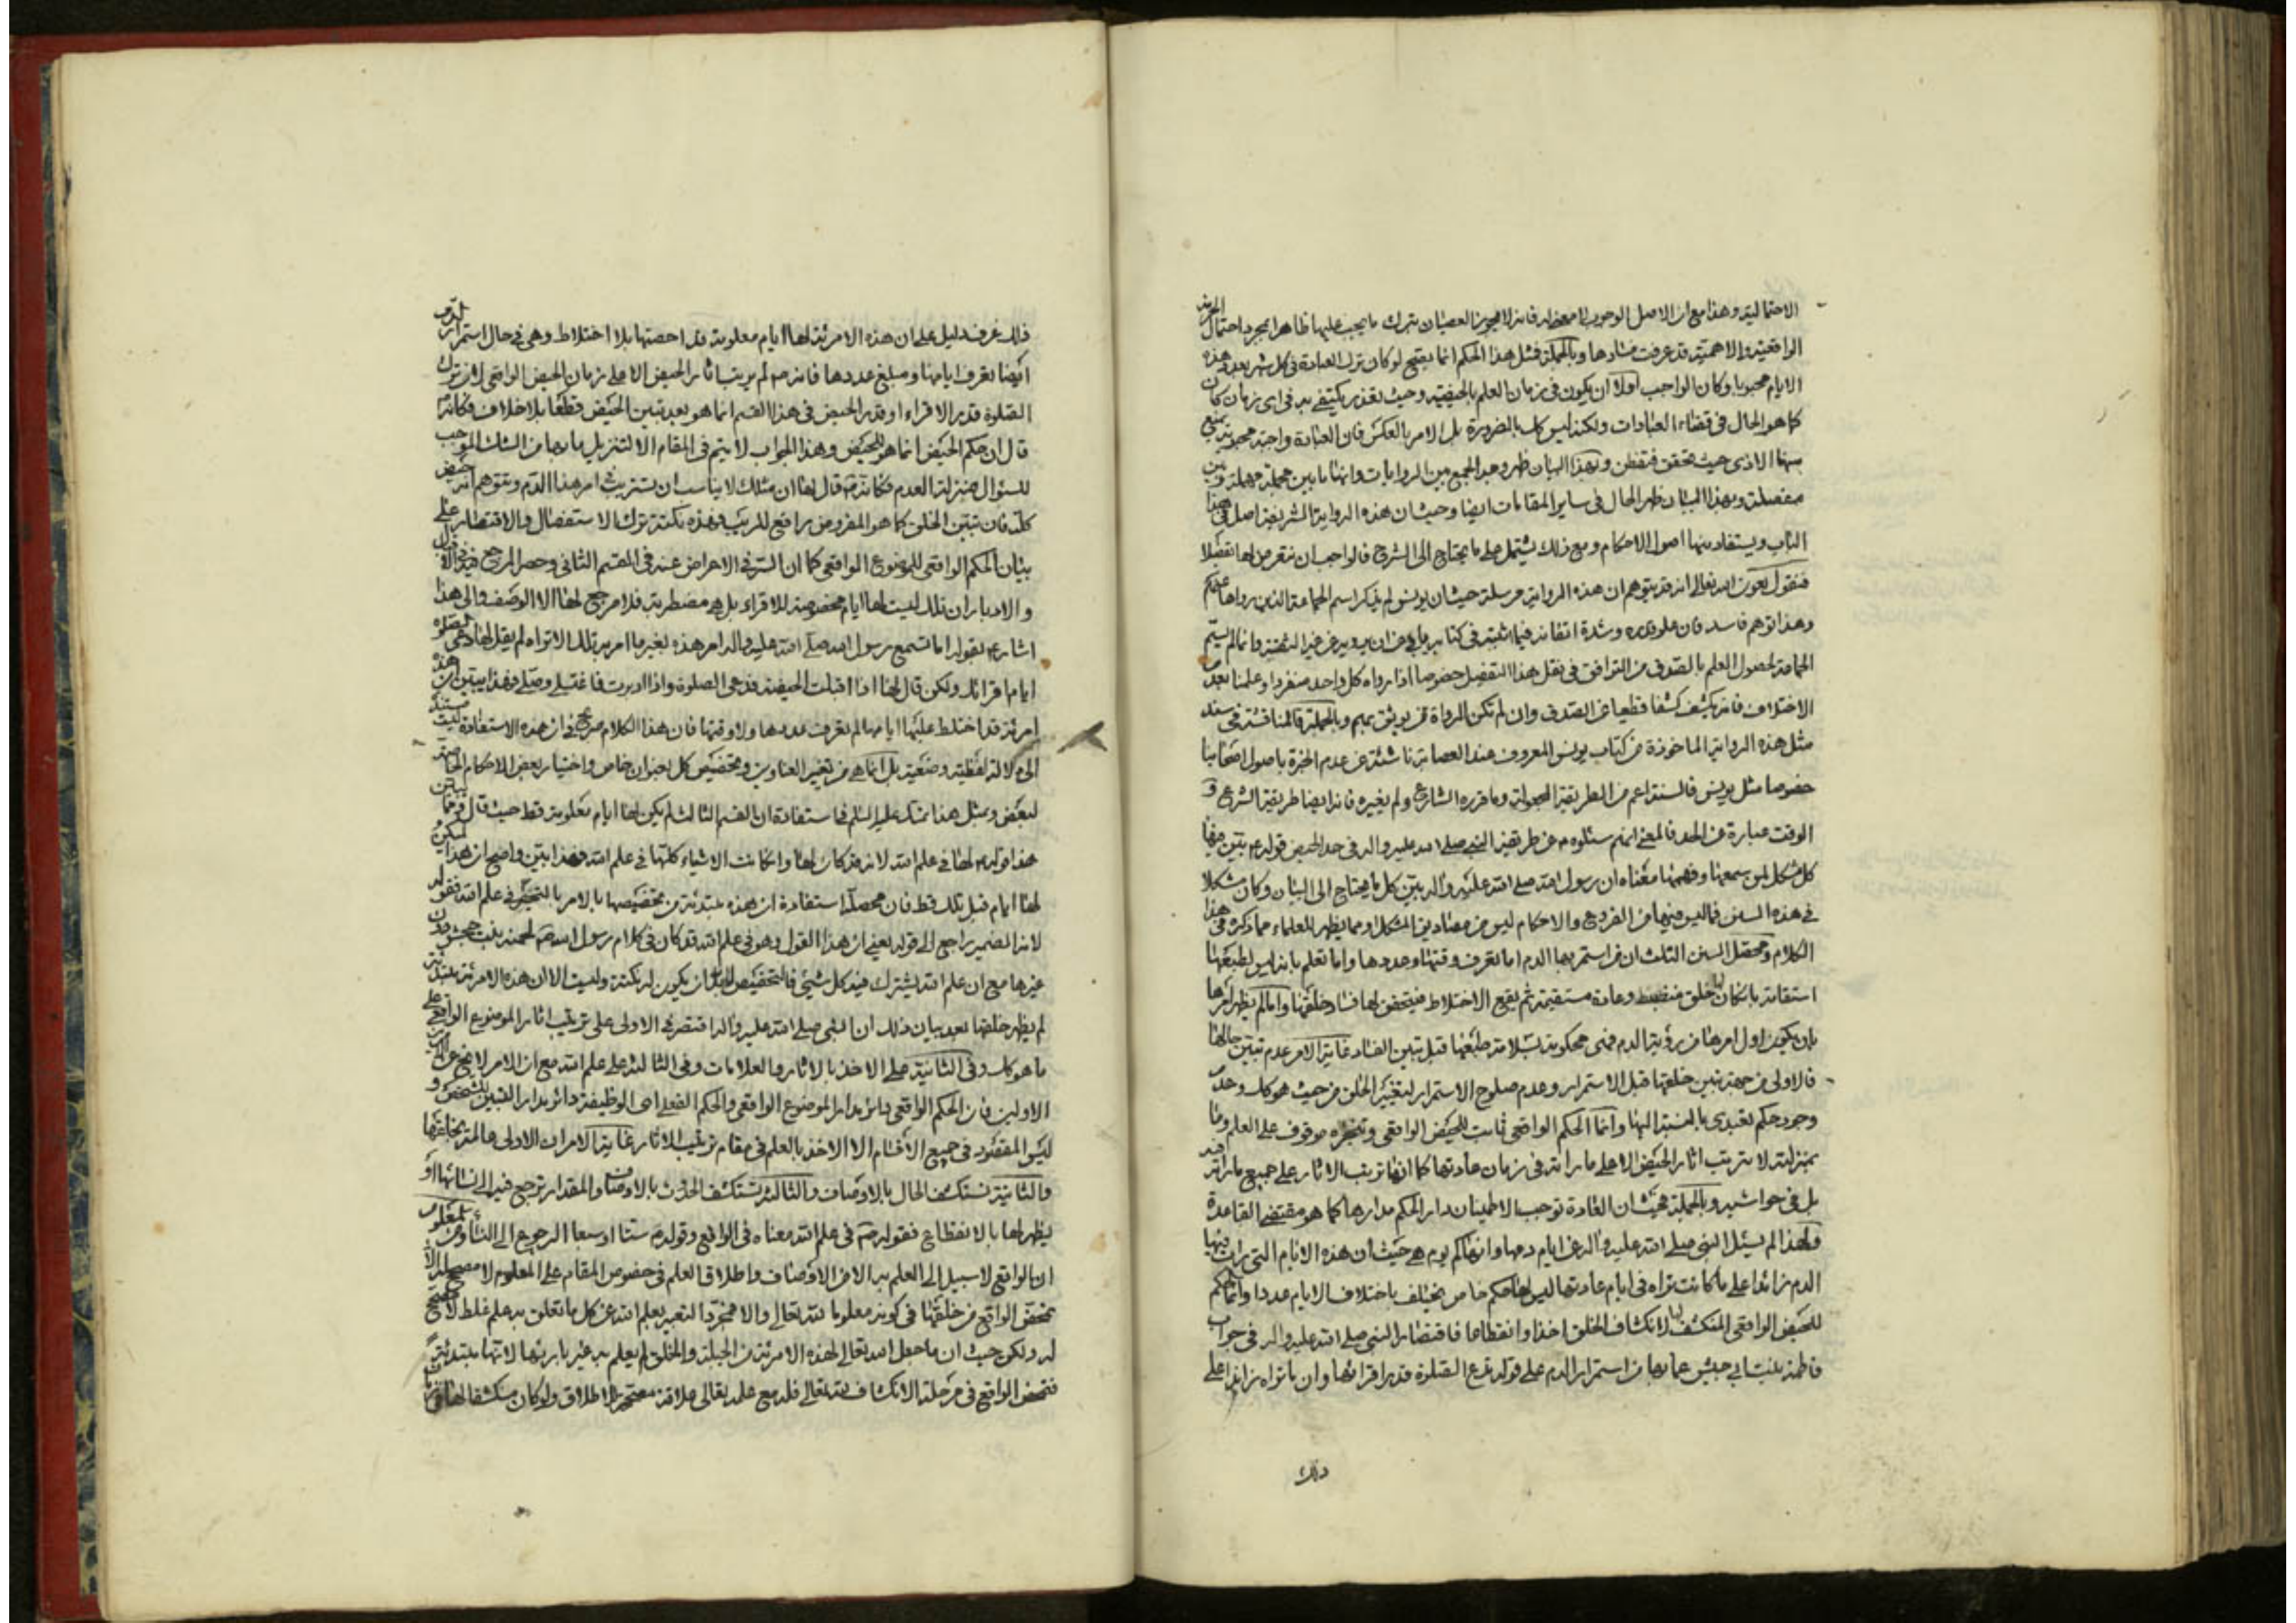 الاحتمالية وهذا مع ان الاصل الوجوب لا معنى له فانه لا يجوز العصيان بترك ما يجب عليها ظاهرا بمجرد احتمال الحرمة
الواقعية والاهمية قد عرفت فسادها وبالجملة فمثل هذا الحكم انما يصح لو كان ترك العبادة في كل شهر بعدد هذه
الايام محبوبا وكان الواجب اولا ان يكون في زمان العلم بالحيضية وحيث تعذر يكتفى به في اى زمان كان
كما هو الحال في قضاء العبادات ولكنه ليس كك بالضرورة بل الامر بالعكس فان العبادة واجبة محبوبة يمنع
عنها الاذى حيث تحقق فتفطن وبهذا البيان ظهر وجه الجمع بين الروايات وانها ما بين مجملة مهملة وبين
مفصلة وبهذا البيان ظهر الحال في ساير المقامات ايضا وحيث ان هذه الرواية الشريفة اصل في هذا
الباب ويستفاد منها اصول الاحكام ومع ذلك يشتمل على ما يحتاج الى الشرح فالواجب ان نتعرض لها تفصيلا
فنقول بعون الله تعالى انه قد يتوهم ان هذه الرواية مرسلة حيث ان يونس لم يذكر اسم الجماعة الذين رواها عنهم
وهذا توهم فاسد فان علو قدره وشدة اتقانه فيما اثبته في كتابه يابى عن ان يرويه عن غير الثقة وانما لم يسم
الجماعة لحصول العلم بالصدق من التوافق في نقل هذا التفصيل خصوصا اذا رواه كل واحد منفردا وعلمنا بعدم
الاختلاف فانه يكشف كشفا قطعيا عن الصدق وان لم تكن الرواة ممن يوثق بهم وبالجملة فالمناقشة في سند
مثل هذه الرواية الماخوذة من كتاب يونس المعروف عند العصابة ناشئة عن عدم الخبرة باصول اصحابنا
خصوصا مثل يونس فالسنة اعم من الطريقة المجعولة وما قرره الشارع ولم يغيره فانه ايضا طريقة الشرع و
الوقت عبارة عن الحد فالمعنى انهم سئلوه عن طريقة النبي صلى الله عليه واله في حد الحيض قوله بين فيها
كل مشكل لمن سمعها وفهمها معناه ان رسول الله صلى الله عليه واله بين كل ما يحتاج الى البيان وكان مشكلا
في هذه السنن فما ليس فيها من الفروع والاحكام ليس من مصاديق المشكل ومما يظهر للعلماء مما ذكره في هذا
الكلام ومحصل السنن الثلث ان من استمر بها الدم اما تعرف وقتها وعددها واما تعلم بانه ليس لطبعها
استقامة بان كان لها خلق منضبط وعادة مستقيمة ثم يقع الاختلاط فيتحقق لها فساد خلقها واما لم يظهر امرها
بان يكون اول امرها من رؤية الدم فهي محكومة بسلامة طبعها قبل تبين الفساد غاية الامر عدم تبين حالها
فالاولى من جهة تبين خلقها قبل الاستمرار وعدم صلوح الاستمرار لتغيير الخلق من حيث هو كك وعدم
وجود حكم تعبدى بالنسبة اليها وانما الحكم الواقعي ثابت للحيض الواقعي وتنجزه موقوف على العلم وما
بمنزلته لا يترتب اثار الحيض الا على ما راته في زمان عادتها كما انها ترتب الاثار على جميع ما راته فيه
بل في حواشيه وبالجملة فحيث ان العادة توجب الاطمينان دار الحكم مدارها كما هو مقتضى القاعدة
ولهذا لم يسئل النبي صلى الله عليه واله عن ايام دمها وانها كم يوم هي حيث ان هذه الايام التي ترى فيها
الدم زائدا على ما كانت تراه في ايام عادتها ليس لها حكم خاص يختلف باختلاف الايام عددا وانما الحكم
للحيض الواقعي المنكشف لها لانكشاف الخلق اخذا وانقطاعا فاقتصار النبي صلى الله عليه واله في جواب
فاطمة بنت ابي حبيش عما بها من استمرار الدم على قوله تدع الصلوة قدر اقرائها وان ما تراه زائدا على
ذلك
ذلك عزف دليل على ان هذه الامرئة لها ايام معلومة قد احصتها بلا اختلاط وهي في حال استمرار الدم
ايضا تعرف ايامها ومبلغ عددها فانه لم يرتب اثار الحيض الا على زمان الحيض الواقعي لان ترك
الصلوة قدر الاقراء او قدر الحيض في هذا القسم انما هو بعد تبين الحيض قطعا بلا خلاف فكانه
قال ان حكم الحيض انما هو للحيض وهذا الجواب لا يتم في المقام الا لتنزيل ما بها من الشك الموجب
للسؤال منزلة العدم فكانه قال لها ان مثلك لا يناسب ان تستريث امر هذا الدم وتتوهم انه حيض
كله فان تبين الخلق كما هو المفروض رافع للريب فهذه نكتة ترك الاستفصال والاقتصار على
بيان الحكم الواقعي للموضوع الواقعي كما ان السر في الاعراض عنه في القسم الثاني وحصر المرجع فيه في الاقبال
والادبار ان تلك ليست لها ايام مخصوصة للاقراء بل هي مضطربة فلا مرجع لها الا الوصف والى هذا
اشار بقوله اما تسمع رسول الله صلى الله عليه واله امر هذه بغير ما امر به تلك الا تراه لم يقل لها دعى الصلوة
ايام اقرائك ولكن قال لها اذا اقبلت الحيضة فدعى الصلوة واذا ادبرت فاغتسلي وصلي فهذا يبين ان هذه
امرئة قد اختلط عليها ايامها لم تعرف عددها ولا وقتها فان هذا الكلام صريح في ان هذه الاستفادة ليست مستندة
الى دلالة لفظية وضعية بل انما هي من تغيير العناوين وتخصيص كل بعنوان خاص واختيار بعض الاحكام الخاصة
لبعض وبمثل هذا تمسك عليه السلام في استفادة ان القسم الثالث لم يكن لها ايام معلومة قط حيث قال ومما يبين
هذا قوله لها في علم الله لانه قد كان لها وان كانت الاشياء كلها في علم الله فهذا بين واضح ان هذه لم يكن
لها ايام قبل تلك قط فان محصله استفادة ان هذه مبتدئة من تخصيصها بالامر بالتحيض في علم الله فقوله
لانه الضمير راجع الى قوله يعني ان هذا القول وهو في علم الله قد كان في كلام رسول الله لحمنة بنت جحش دون
غيرها مع ان علم الله يشترك فيه كل شيئ فالتخصيص لابد ان يكون له نكتة وليست الا ان هذه الامرئة مبتدئة
لم يظهر خلقها بعد بيان ذلك ان النبي صلى الله عليه واله اقتصر في الاولى على ترتيب اثار الموضوع الواقعي على
ما هو كك وفي الثانية على الاخذ بالاثار والعلامات وفي الثالثة على علم الله مع ان الامر لا يخرج عن الامرين
الاولين فان الحكم الواقعي دائر مدار الموضوع الواقعي والحكم الفعلي اعني الوظيفة دائر مدار التبين للشخص و
ليس المقصود في جميع الاقسام الا الاخذ بالعلم في مقام ترتيب الاثار غاية الامر ان الاولى عالمة بخلقها
والثانية تستكشف الحال بالاوصاف والثالثة تستكشف الحدوث بالاوصاف والمقدار ترجع فيه الى نسائها او
يظهر لها بالانقطاع فقوله في علم الله معناه في الواقع وقوله ستا او سبعا الرجوع الى النساء ومن المعلوم
ان الواقع لا سبيل الى العلم به الا من الاوصاف واطلاق العلم في خصوص المقام على المعلوم لا مصحح له الا
تمحض الواقع من خلقها في كونه معلوما لله تعالى والا فمجرد التعبير بعلم الله عن كل ما تعلق به علم غلط لا مصحح
له ولكن حيث ان ما جعل الله تعالى لهذه الامرئة من الجبلة والخلق لم يعلم به غير بارئها لانها مبتدئة
فتمحض الواقع في مرحلة الانكشاف لله تعالى فله مع علمه تعالى علاقة مصححة للاطلاق ولو كان منكشفا لها